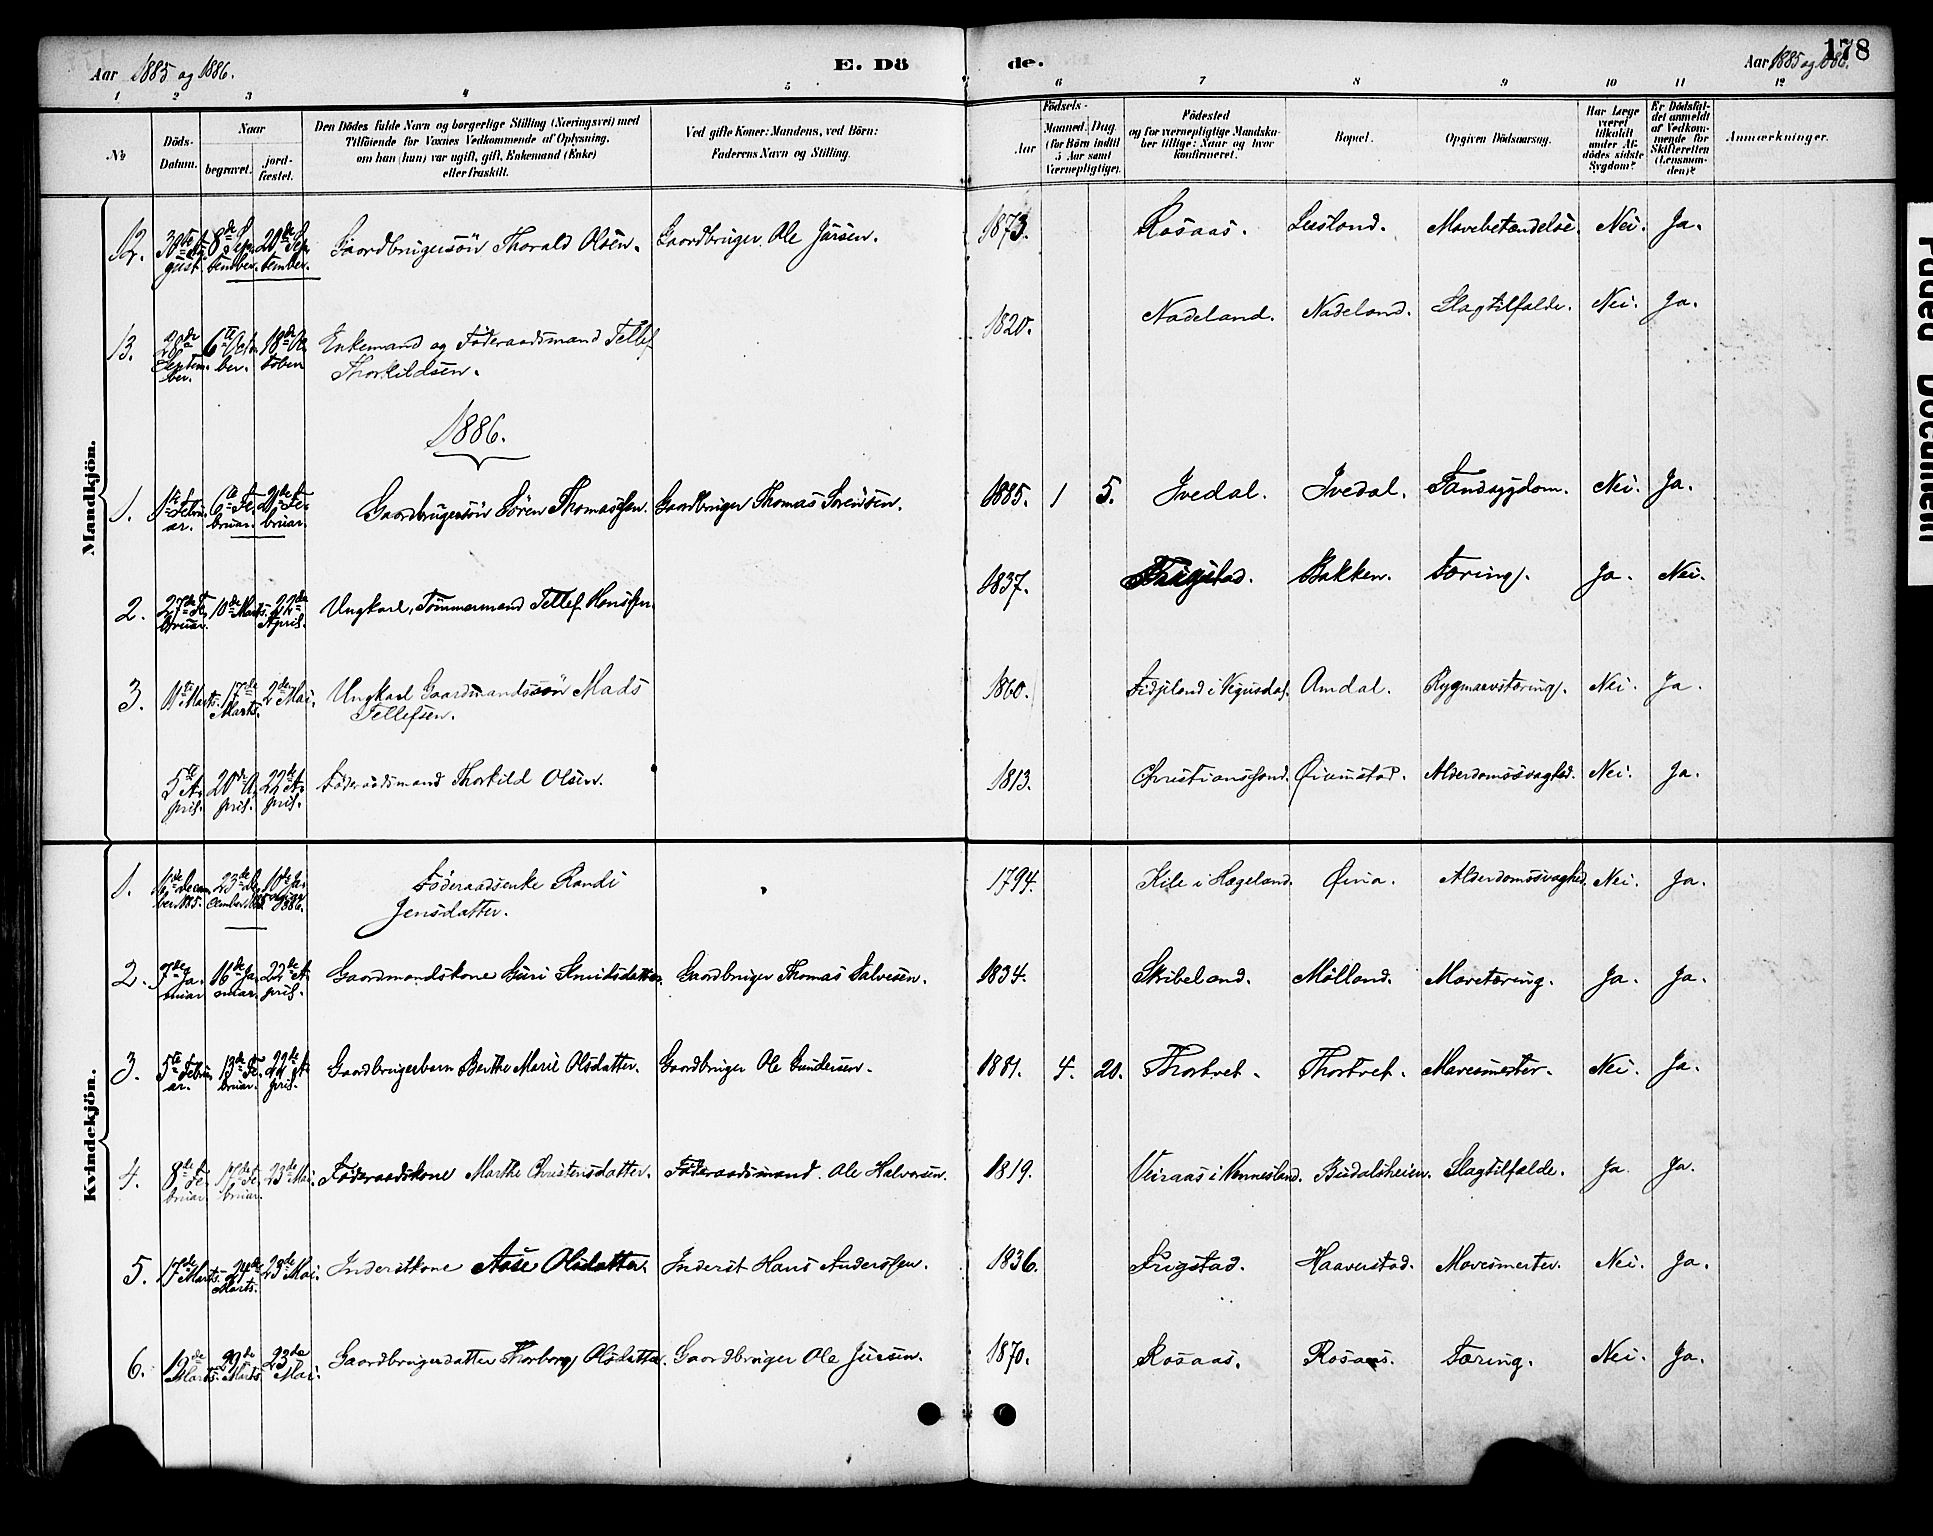 Aar 1885 og 1886.
E. Dö
de.
Aar 1885 og 1886.
178
1 2 3 4 5 6 7 8 9 10 11 12
No
Döds-Datum.
Naar
begravet.
jordfæstet.
Den Dödes fulde Navn og borgerlige Stilling (Næringsvei) med
Tilföiende for Voxnes Vedkommende af Oplysning,
om han (hun) var ugift, gift, Enkemand (Enke)
eller fraskilt.
Ved gifte Koner: Mandens, ved Börn:
Faderens Navn og Stilling.
Födsels-
Aar
Maaned. Dag.
(for Börn indtil
5 Aar samt
Værnepligtige).
Födested
og for værnepligtige Mandskaber tillige: Naar og hvor
konfirmeret.
Bopæl.
Opgiven Dödsaarsag.
Har Læge
været
tilkaldt
under Afdödes sidste
Sygdom?
Er Dödsfaldet anmeldt
af Vedkommende for
Skifteretten
(Lensmanden)?
Anmærkninger.
Mandkjön.
12. 8de September. 20de September. Gaardbrugersön Thorald Olsen. Gaardbruger Ole Jörsen. 1873. Rosaas. Lusland. Mavebetændelse. Nei. Ja.
13. 28de September. 6te October. 18de October Enkemand og Föderaadsmand Tellef
Thorkildsen. 1820. Nadeland. Nadeland. Slagtilfælde. Nei. Ja.
1886.
1. 1ste Februar. 6te Februar. 21de Februar. Gaardbrugersön Sören Thomassen. Gaardbruger Thomas Sörensen. 1885. 1 5. Ivedal. Ivedal. Tandsygdom. Nei. Ja.
2. 27de Februar. 10de Marts. 22de April. Ungkarl, Tömmermand Tellef Hanssen. 1837. Frigstad. Bakken. Tæring. Ja. Nei.
3. 11te Marts. 17de Marts. 2den Mai. Ungkarl Gaardmandssön Mads
Tellefsen. 1860. Fidjeland i Vegusdal. Amdal. Rygmarvstæring. Nei. Ja.
5te April. 20de April. 22de April. Föderaadsmand Thorkild Olsen. 1813. Christianssand. Öiumstad. Alderdomssvaghed. Nei. Ja.
Kvindekjön.
1. 11te December 1885. 23de December 1885. 10de Januar 1886. Föderaadsenke Randi
Jensdatter. 1794. Kile i Hægeland. Öina. Alderdomssvaghed. Nei. Ja.
2. 7de Januar 16de Januar. 22de April. Gaardmandskone Guri Knudsdatter. Gaardbruger Thomas Salvesen. 1834. Skibeland. Mölland. Mavetæring. Ja. Ja.
3. 5te Februar. 13de Februar. 22de April. Gaardbrugerbarn Berthe Marie Olsdatter. Gaardbruger Ole Gundersen. 1881. 4. 20. Thortvet. Thortvet. Mavesmerter. Nei. Ja.
4. 8de Februar. 17de Februar. 23de Mai. Föderaadskone Marthe Christensdatter. Föderaadsmand Ole Halvorsen. 1819. Veiraas i Vennesland. Budalsheien. Slagtilfælde. Ja. Ja.
5. 17de Marts. 24de Marts. 23de Mai. Inderstkone Aase Olsdatter. Inderst Hans Anderssen. 1836. Frigstad. Haaverstad. Mavesmerter. Nei. Ja.
6. 19de Marts. 29de Marts. 23de Mai. Gaardbrugerdatter Thorborg Olsdatter. Gaardbruger Ole Jursen. 1870. Rosaas. Rosaas. Tæring. Nei. Ja.
Faded Document